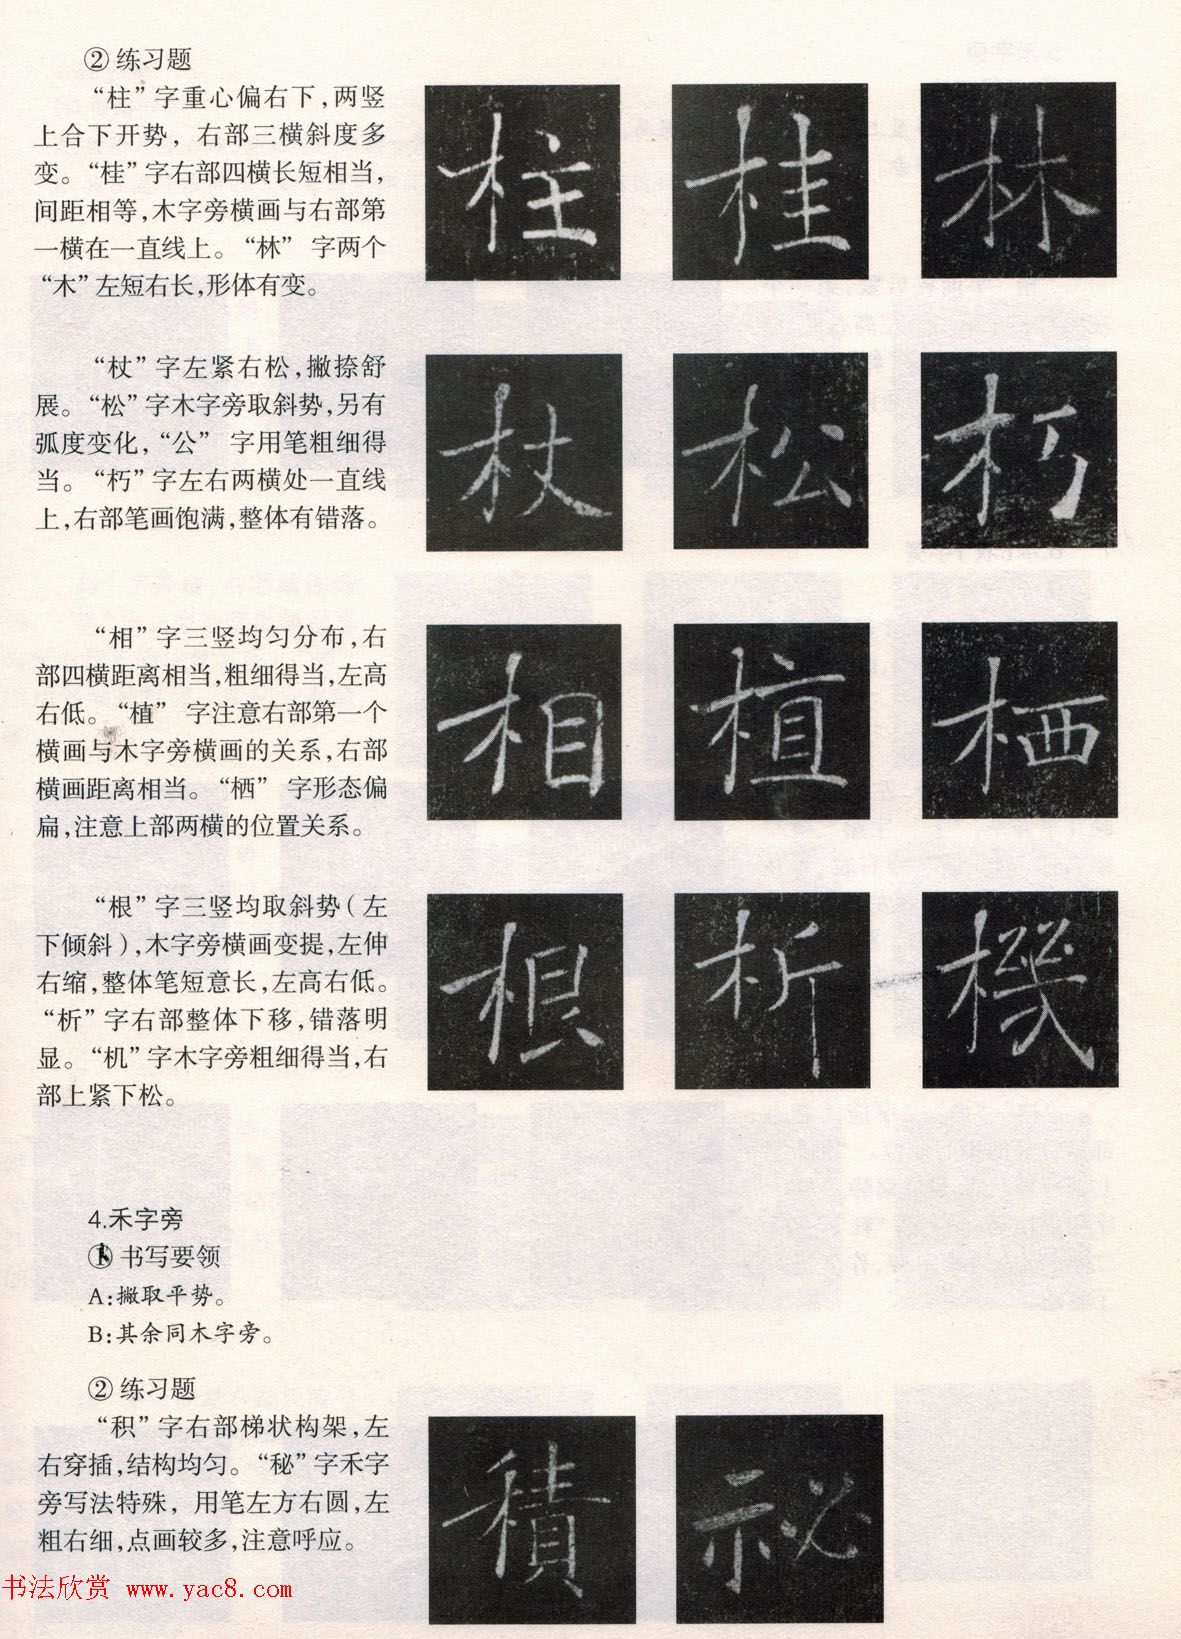 ② 练习题
“柱”字重心偏右下,两竖
上合下开势，右部三横斜度多
变。“桂”字右部四横长短相当,
间距相等,木字旁横画与右部第
一横在一直线上。“林” 字两个
“木”左短右长,形体有变。
柱 桂 林
“杖”字左紧右松,撇捺舒
展。“松”字木字旁取斜势,另有
弧度变化,“公” 字用笔粗细得
当。“朽”字左右两横处一直线
上,右部笔画饱满,整体有错落。
杖 松 朽
“相”字三竖均匀分布,右
部四横距离相当,粗细得当,左高
右低。“植” 字注意右部第一个
横画与木字旁横画的关系,右部
横画距离相当。“栖” 字形态偏
扁,注意上部两横的位置关系。
相 植 栖
“根”字三竖均取斜势(左
下倾斜),木字旁横画变提,左伸
右缩,整体笔短意长,左高右低。
“析”字右部整体下移,错落明
显。“机”字木字旁粗细得当,右
部上紧下松。
根 析 機
4.禾字旁
① 书写要领
A:撇取平势。
B:其余同木字旁。
② 练习题
“积”字右部梯状构架,左
右穿插,结构均匀。“秘”字禾字
旁写法特殊，用笔左方右圆,左
粗右细,点画较多,注意呼应。
積 祕
书法欣赏 www.yac8.com